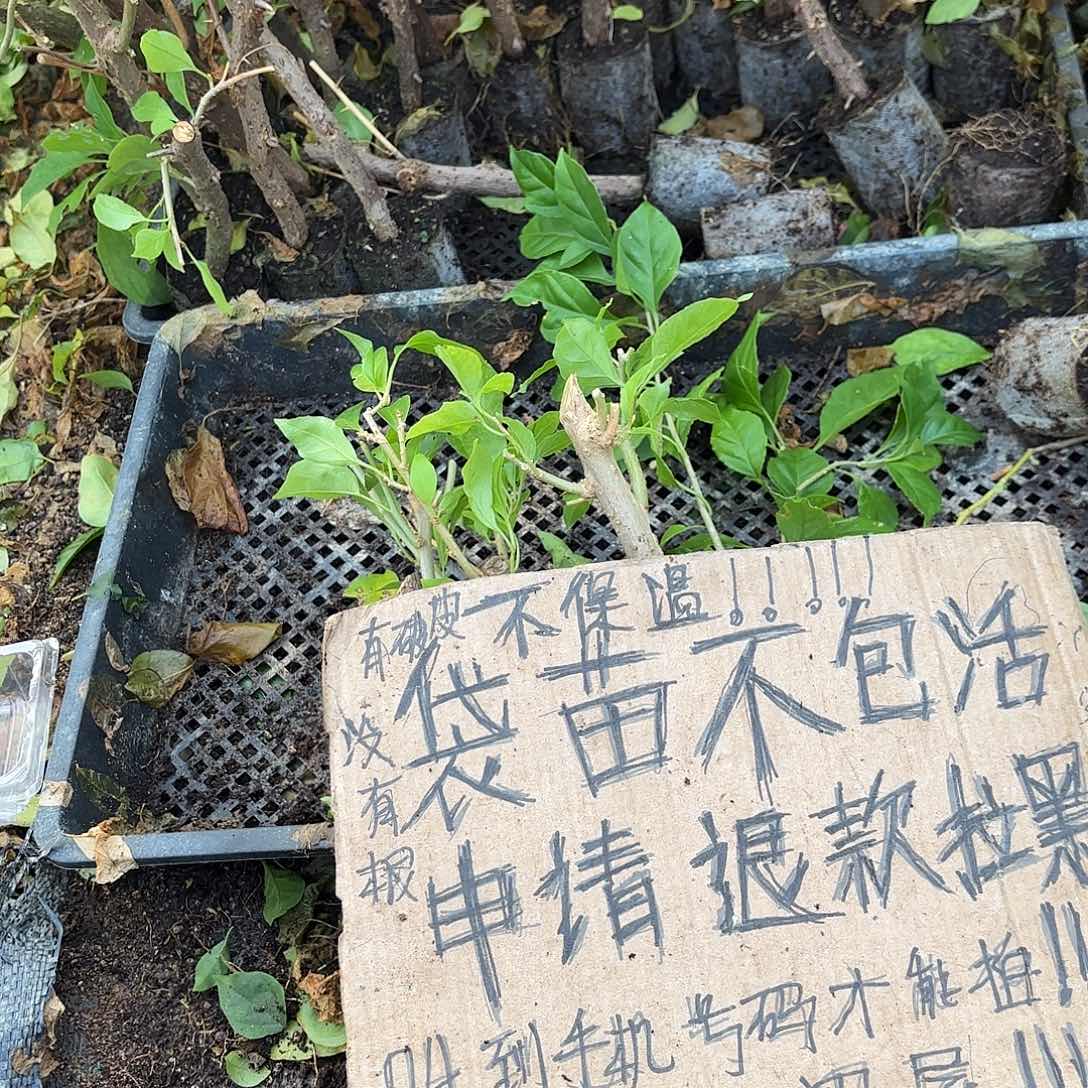 有破皮不保温!!!!!
袋苗不包活
没有根
申请退款拉黑!!
到手机号码才能拍!!